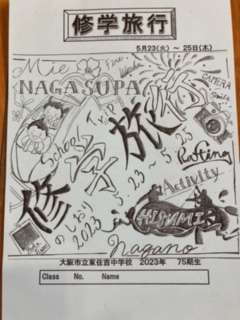 修学旅行
5月23(火) ～ 25日(木)
Mie
NAGASUPA
CAMERA
School Trip
修学旅行
5.23~5.25
Rafting
Activity
のしおり
2023
HISAMI
Nagano
大阪市立東住吉中学校 2023年 75期生
Class No. Name